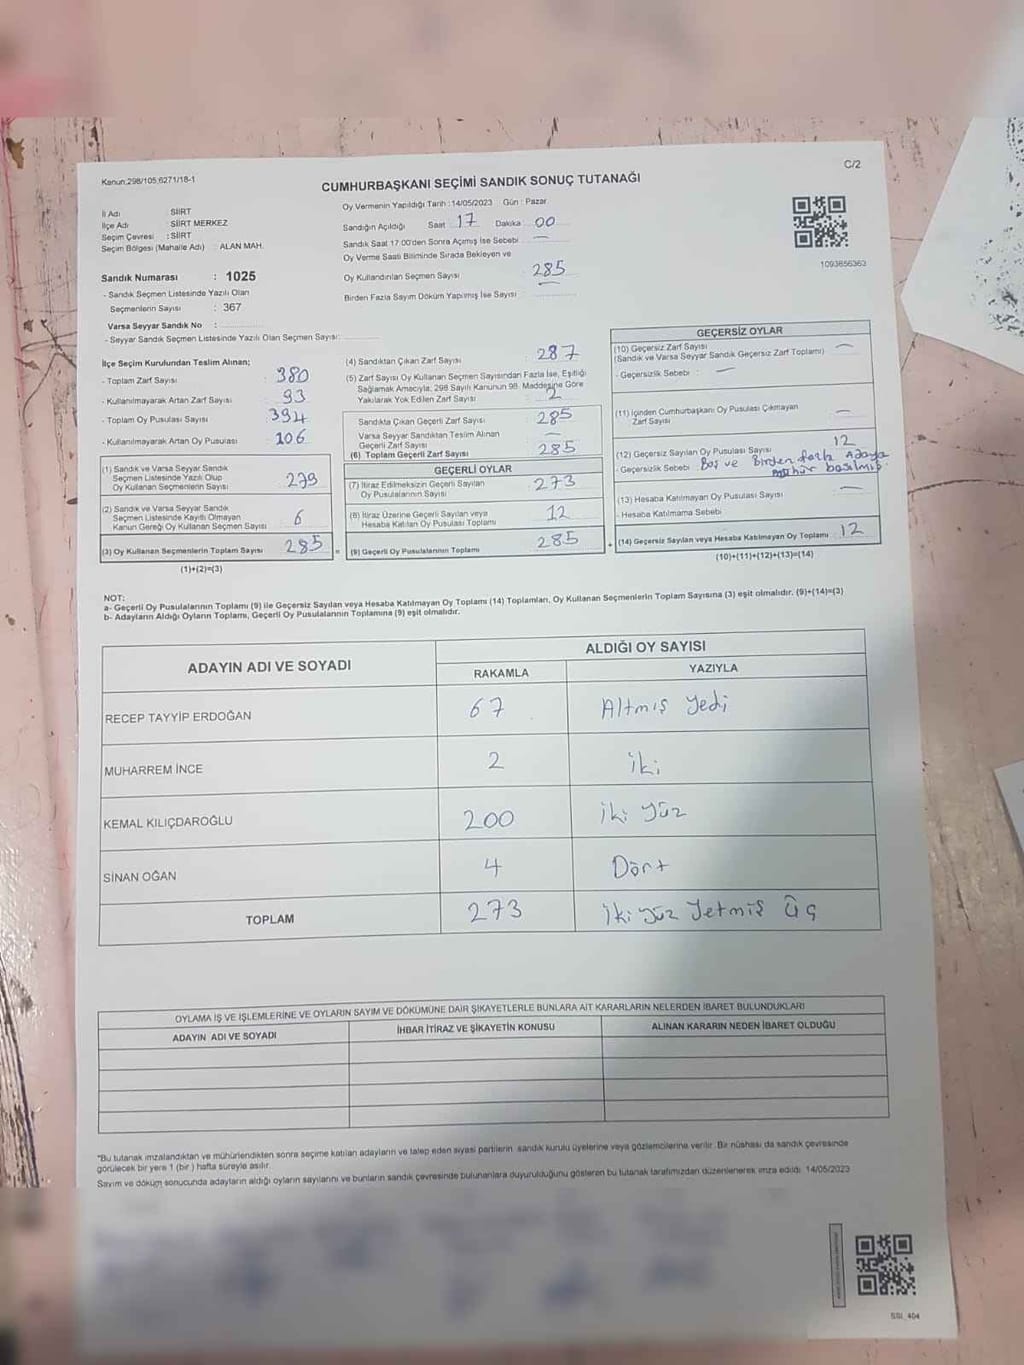 Kanun:298/105,6271/18-1
C/2
CUMHURBAŞKANI SEÇİMİ SANDIK SONUÇ TUTANAĞI
İl Adı SİİRT
İlçe Adı SİİRT MERKEZ
Seçim Çevresi : SİİRT
Seçim Bölgesi (Mahalle Adı) : ALAN MAH.
Sandık Numarası : 1025
- Sandık Seçmen Listesinde Yazılı Olan
Seçmenlerin Sayısı : 367
Varsa Seyyar Sandık No :
- Seyyar Sandık Seçmen Listesinde Yazılı Olan Seçmen Sayısı:
Oy Vermenin Yapıldığı Tarih : 14/05/2023 Gün : Pazar
Sandığın Açıldığı Saat 17 Dakika 00
Sandık Saat 17:00'den Sonra Açımış İse Sebebi —
Oy Verme Saati Bitiminde Sırada Bekleyen ve
Oy Kullandırılan Seçmen Sayısı 285
Birden Fazla Sayım Döküm Yapılmış İse Sayısı :
1093656363
İlçe Seçim Kurulundan Teslim Alınan;
- Toplam Zarf Sayısı : 380
- Kullanılmayarak Artan Zarf Sayısı : 93
- Toplam Oy Pusulası Sayısı : 394
- Kullanılmayarak Artan Oy Pusulası : 106
(1) Sandık ve Varsa Seyyar Sandık
Seçmen Listesinde Yazılı Olup
Oy Kullanan Seçmenlerin Sayısı 279
(2) Sandık ve Varsa Seyyar Sandık
Seçmen Listesinde Kayıtlı Olmayan
Kanun Gereği Oy Kullanan Seçmen Sayısı 6
(3) Oy Kullanan Seçmenlerin Toplam Sayısı 285 =
(1)+(2)=(3)
(4) Sandıktan Çıkan Zarf Sayısı : 287
(5) Zarf Sayısı Oy Kullanan Seçmen Sayısından Fazla İse, Eşitliği
Sağlamak Amacıyla; 298 Sayılı Kanunun 98. Maddesine Göre
Yakılarak Yok Edilen Zarf Sayısı : 2
Sandıkta Çıkan Geçerli Zarf Sayısı : 285
Varsa Seyyar Sandıktan Teslim Alınan
Geçerli Zarf Sayısı —
(6) Toplam Geçerli Zarf Sayısı : 285
GEÇERLİ OYLAR
(7) İtiraz Edilmeksizin Geçerli Sayılan
Oy Pusulalarının Sayısı : 273
(8) İtiraz Üzerine Geçerli Sayılan veya
Hesaba Katılan Oy Pusulası Toplamı 12
(9) Geçerli Oy Pusulalarının Toplamı 285 +
GEÇERSİZ OYLAR
(10) Geçersiz Zarf Sayısı —
(Sandık ve Varsa Seyyar Sandık Geçersiz Zarf Toplamı)
- Geçersizlik Sebebi : —
(11) İçinden Cumhurbaşkanı Oy Pusulası Çıkmayan
Zarf Sayısı —
(12) Geçersiz Sayılan Oy Pusulası Sayısı 12
- Geçersizlik Sebebi Boş ve Birden fazla Adaya
mühür basılmış
(13) Hesaba Katılmayan Oy Pusulası Sayısı —
- Hesaba Katılmama Sebebi
(14) Geçersiz Sayılan veya Hesaba Katılmayan Oy Toplamı 12
(10)+(11)+(12)+(13)=(14)
NOT:
a- Geçerli Oy Pusulalarının Toplamı (9) ile Geçersiz Sayılan veya Hesaba Katılmayan Oy Toplamı (14) Toplamları, Oy Kullanan Seçmenlerin Toplam Sayısına (3) eşit olmalıdır. (9)+(14)=(3)
b- Adayların Aldığı Oyların Toplamı, Geçerli Oy Pusulalarının Toplamına (9) eşit olmalıdır.
ADAYIN ADI VE SOYADI ALDIĞI OY SAYISI
RAKAMLA YAZIYLA
RECEP TAYYİP ERDOĞAN 67 Altmış yedi
MUHARREM İNCE 2 iki
KEMAL KILIÇDAROĞLU 200 iki yüz
SİNAN OĞAN 4 Dört
TOPLAM 273 iki yüz Yetmiş Üç
OYLAMA İŞ VE İŞLEMLERİNE VE OYLARIN SAYIM VE DÖKÜMÜNE DAİR ŞİKAYETLERLE BUNLARA AİT KARARLARIN NELERDEN İBARET BULUNDUKLARI
ADAYIN ADI VE SOYADI İHBAR İTİRAZ VE ŞİKAYETİN KONUSU ALINAN KARARIN NEDEN İBARET OLDUĞU
*Bu tutanak imzalandıktan ve mühürlendikten sonra seçime katılan adayların ve talep eden siyasi partilerin sandık kurulu üyelerine veya gözlemcilerine verilir. Bir nüshası da sandık çevresinde
görülecek bir yere 1 (bir) hafta süreyle asılır.
Sayım ve döküm sonucunda adayların aldığı oyların sayılarını ve bunların sandık çevresinde bulunanlara duyurulduğunu gösteren bu tutanak tarafımızdan düzenlenerek imza edildi. 14/05/2023